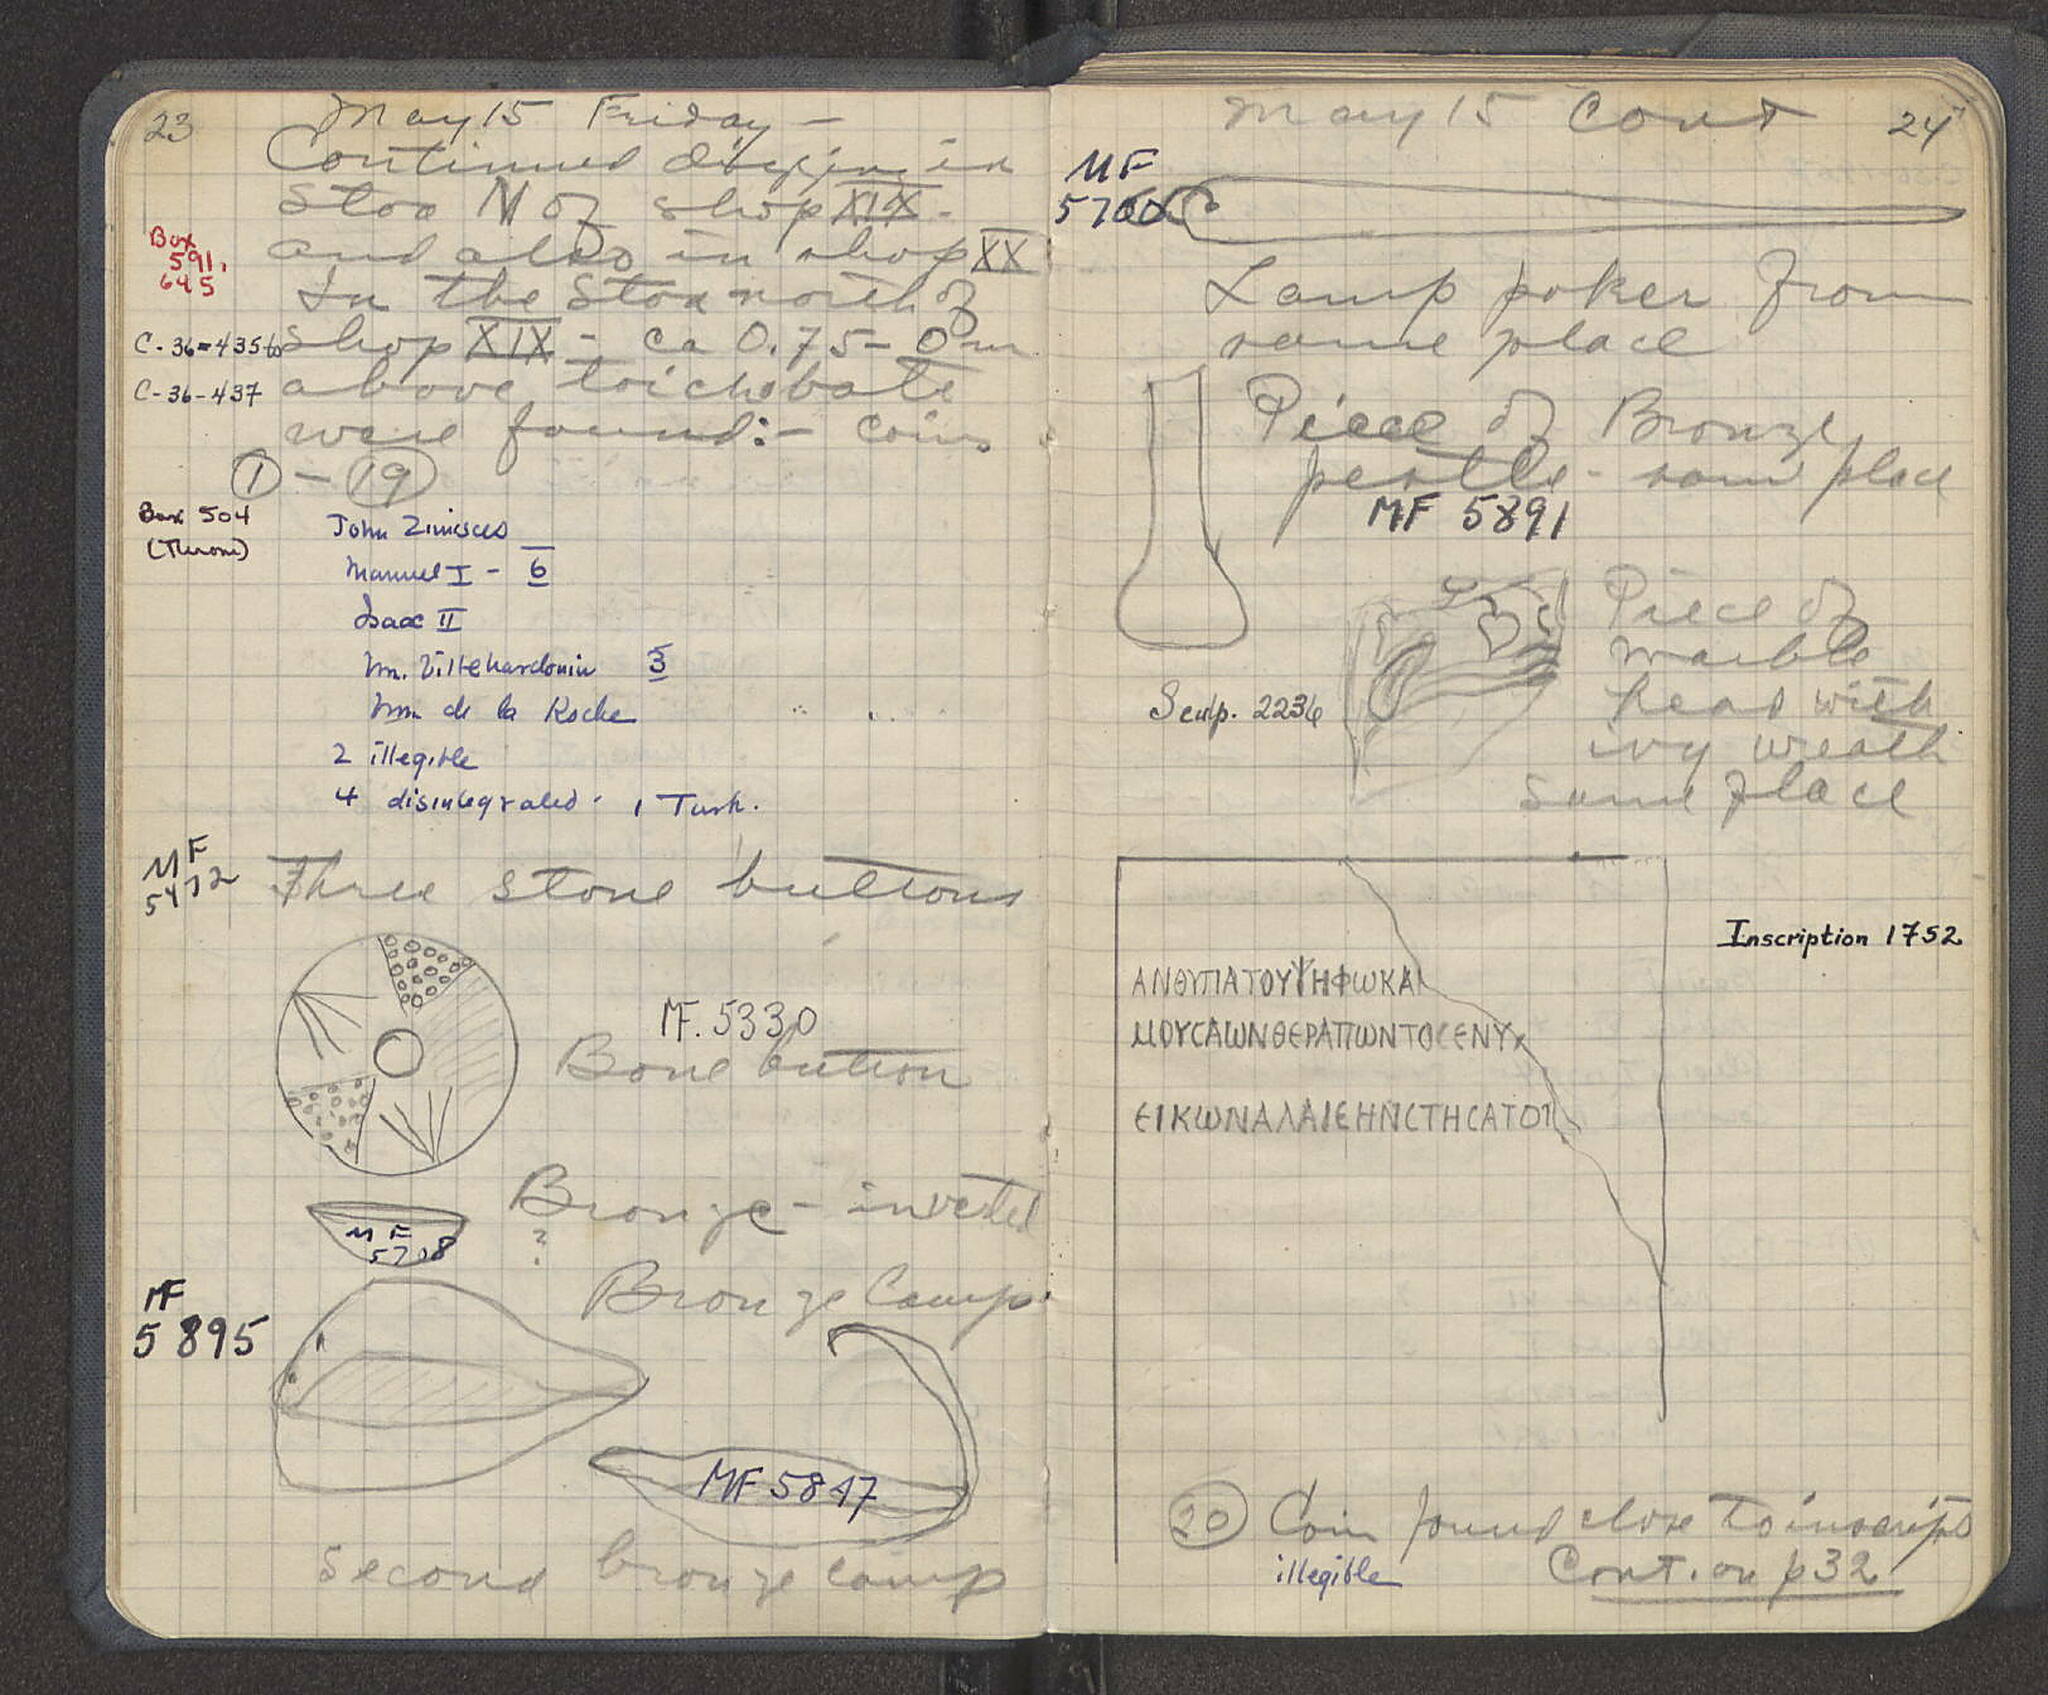 23
May 15 Friday -
Continued digging in
Stoa N of shop XIX -
and also in shop XX
Box
591,
645
In the Stoa north of
C-36-435 to
shop XIX - ca 0.75 - 0 m
C-36-437
above toichobate
were found:- coins
1 - 19
Box 504
(Throne)
John Zimisces
Manuel I - 6
Isaac II
Wm. Villehardouin 3
Wm de la Roche
2 illegible
4 disintegrated. 1 Turk.
MF
5472
Three stone buttons
MF. 5330
Bone button
Bronze - inverted
?
MF
5708
Bronze lamp.
MF
5895
MF 5847
Second bronze lamp
May 15 Cont
24
MF
5700
Lamp poker from
same place
Piece of Bronze
pestle - same place
MF 5891
Piece of
marble
head with
ivy wreath
same place
Sculp. 2236
Inscription 1752
ΑΝΘΥΠΑΤΟΥΨΗΦΩΚΑΙ
ΜΟΥCΑΩΝΘΕΡΑΠΩΝΤΟCΕΝΥ
ΕΙΚΩΝΑΛΑΙΕΗΝCΤΗCΑΤΟΓ
20 Coin found close to inscript
illegible
Cont. on p 32